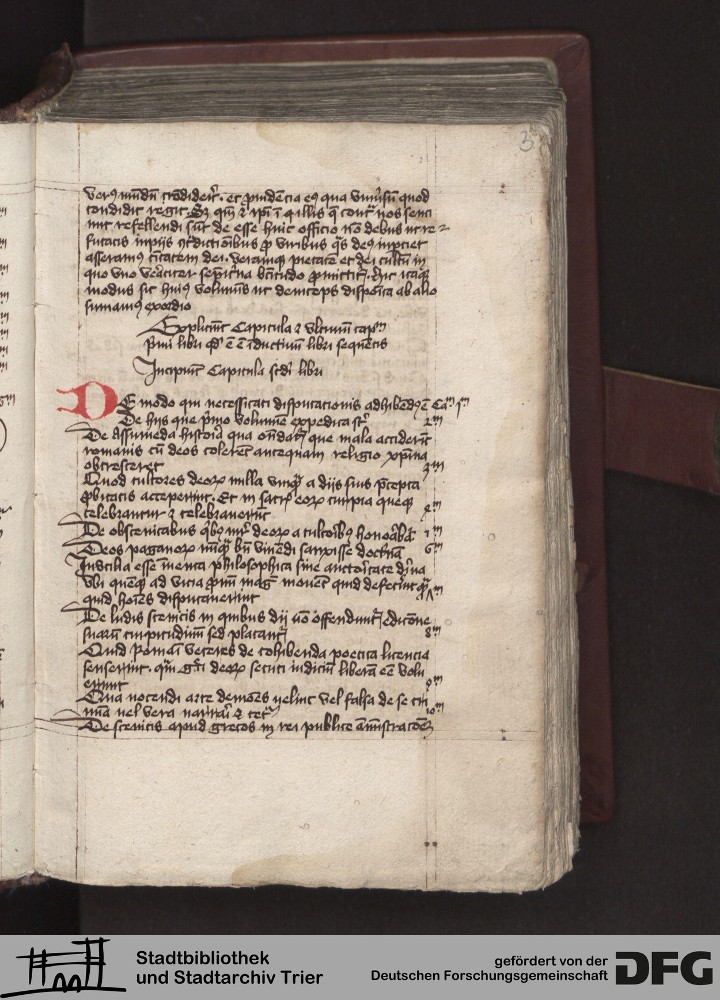 3
verus mundum condiderit. et prouidencia eius qua vniuersum quod
condidit regit. Sz qm̄ et ipsi in illis que contra nos senci
unt refellendi sunt de esse huic officio non debemus ut re
futatis impijs contradictionibus pro viribus quas deus inpertiet
asseramus ciuitatem dei. veramque pietatem et dei cultum in
quo vno veraciter sempiterna beatitudo promittitur. hic itaque
modus sit huius voluminis ut deinceps disposita ab alio
sumamus exordio
Expliciunt Capitula et vltimum capm
primi libri quod est inductiuum libri sequentis
Incipiunt Capitula scdi libri
De modo qui necessitati disputacionis adhibendus est Cam 1m
De hijs que primo volumine expedita st 2m
De Assumenda historia qua ondatur que mala acciderint
romanis cum deos colerent antequam religio xpiana
obcresceret 3m
Quod cultores deorum nulla vnquam a dijs suis precepta
probitatis acceperunt. Et in sacris eorum turpia queque
celebrantur et celebrauerunt 4m
De obscenitatibus quibus mater deorum a cultoribus honorabatur 5m
Deos paganorum nunquam bene viuendi sanxisse doctrinam 6m
Inutilia esse inuenta philosophica sine auctoritate diuina
Vbi quemque ad vicia pronum magis mouent quid deserint quam
quid homines disputauerunt 7m
De ludis scenicis in quibus dij non offenduntur edicione
suarum turpitudinum sed placantur 8m
Quid Romani veteres de cohibenda poetica licencia
senserint. quam greci deorum secuti iudicium liberam esse volu
erunt 9m
Qua nocendi arte demones uelint vel falsa de se cri
mina uel vera narrari et cetera 10m
De scenicis apud grecos in rei publice amministracione
Stadtbibliothek
und Stadtarchiv Trier
gefördert von der
Deutschen Forschungsgemeinschaft
DFG